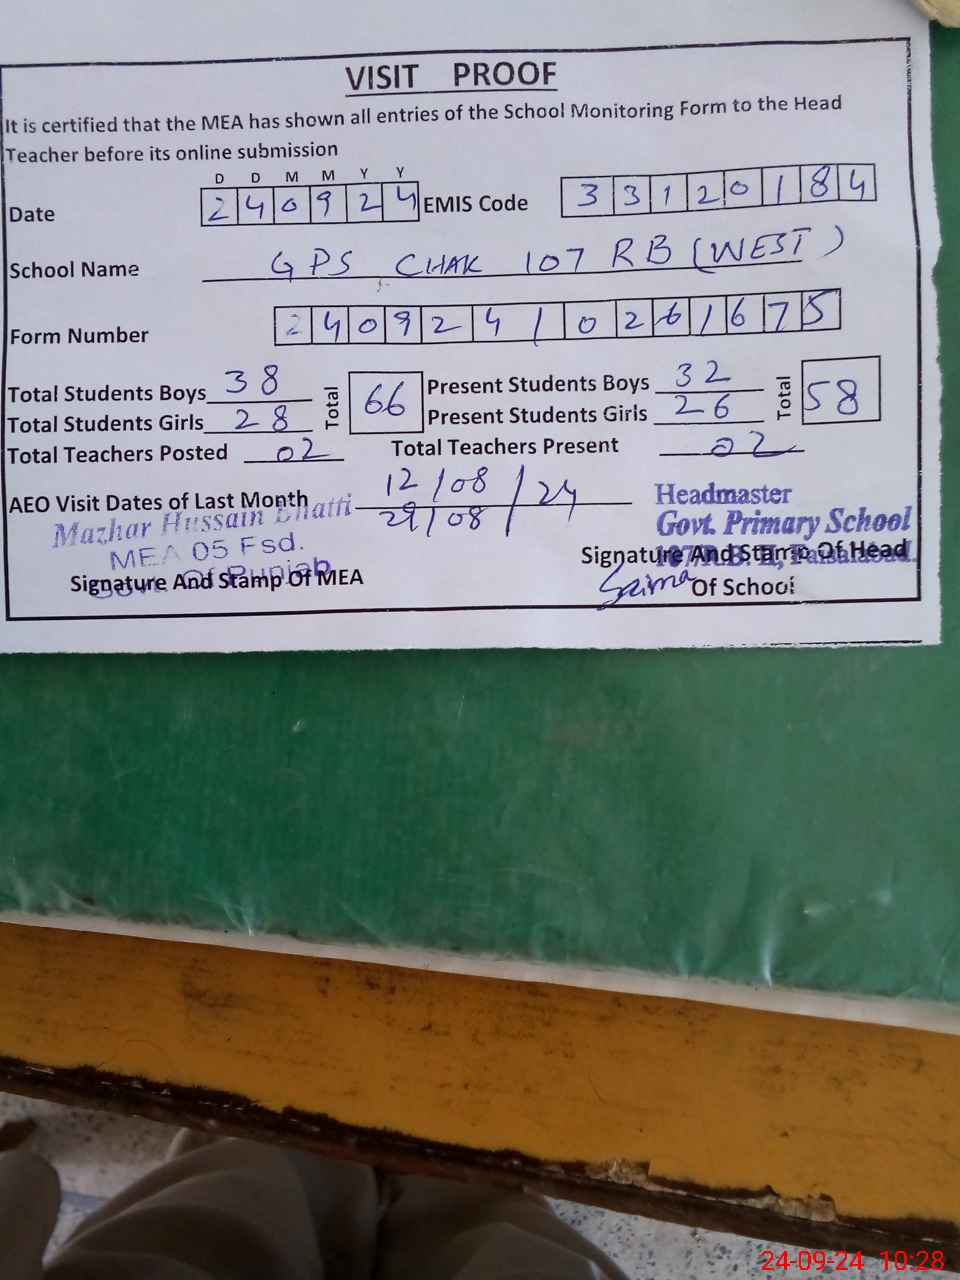 VISIT PROOF
It is certified that the MEA has shown all entries of the School Monitoring Form to the Head
Teacher before its online submission
D D M M Y Y
Date 2 4 0 9 2 4 EMIS Code 3 3 1 2 0 1 8 4
School Name GPS CHAK 107 RB (WEST)
Form Number 2 4 0 9 2 4 1 0 2 6 1 6 7 5
Total Students Boys 38 Total 66 Present Students Boys 32 Total 58
Total Students Girls 28 Present Students Girls 26
Total Teachers Posted 02 Total Teachers Present 02
AEO Visit Dates of Last Month 12/08 /24
29/08
Mazhar Hussain Bhatti
MEA 05 Fsd.
Govt. Of Punjab
Signature And Stamp Of MEA
Headmaster
Govt. Primary School
107/R.B. Faisalabad.
Signature And Stamp Of Head
Saima Of School
24-09-24 10:28